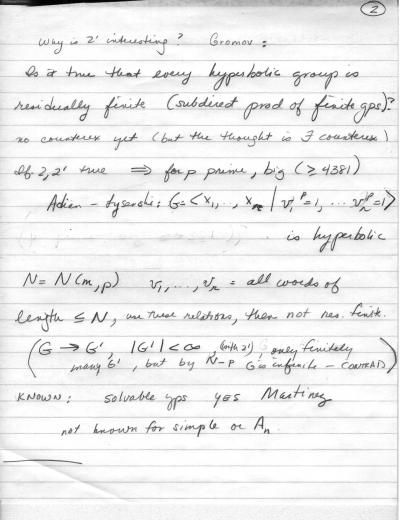 2
Why is 2' interesting? Gromov:
Is it true that every hyperbolic group is
residually finite (subdirect prod of finite gps)?
no counterex yet (but the thought is ∃ counterex)
If 2, 2' true ⟹ for p prime, big (≥ 4381)
Adian - : G = < x₁, ..., xₘ | v₁ᵖ = 1, ... vᵣᵖ = 1 >
is hyperbolic
N = N(m, p) v₁, ..., vᵣ = all words of
length ≤ N, use these relations, then not res. finite.
(G → G', |G'| < ∞, (with 2') only finitely
many G', but by N-P G is infinite - CONTRAD)
KNOWN: solvable gps YES Martinez
not known for simple or Aₙ.